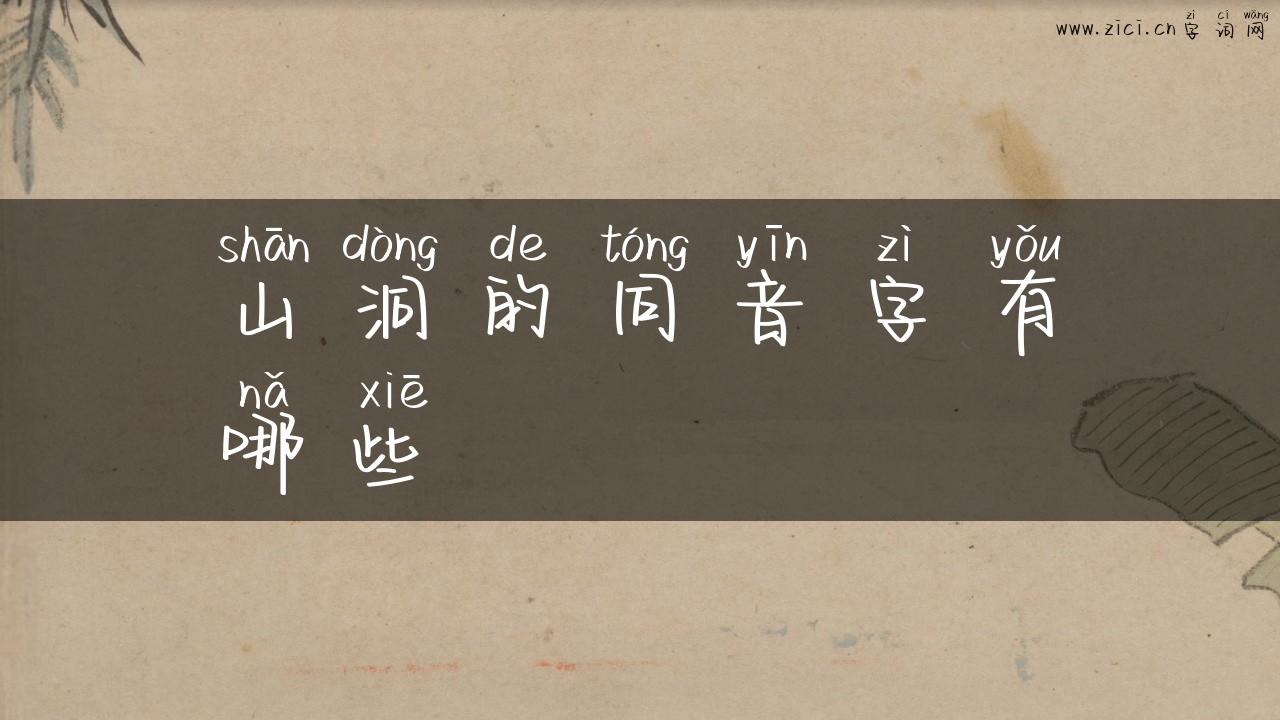 zì cí wǎng
www.zici.cn 字词网
shān dòng de tóng yīn zì yǒu
山洞的同音字有
nǎ xiē
哪些